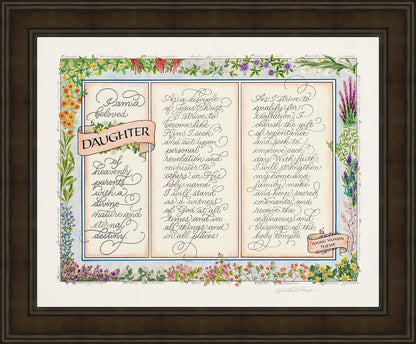 I am a
beloved
DAUGHTER
of
heavenly
parents
with a
divine
nature and
eternal
destiny
As a disciple
of Jesus Christ,
I strive to
become like
Him. I seek
and act upon
personal
revelation and
minister to
others in His
holy name.
I will stand
as a witness
of God at all
times and in
all things and
in all places.
As I strive to
qualify for
exaltation, I
cherish the gift
of repentance
and seek to
improve each
day. With faith,
I will strengthen
my home and
family, make
and keep sacred
covenants, and
receive the
ordinances and
blessings of the
holy temple.
YOUNG WOMEN
THEME